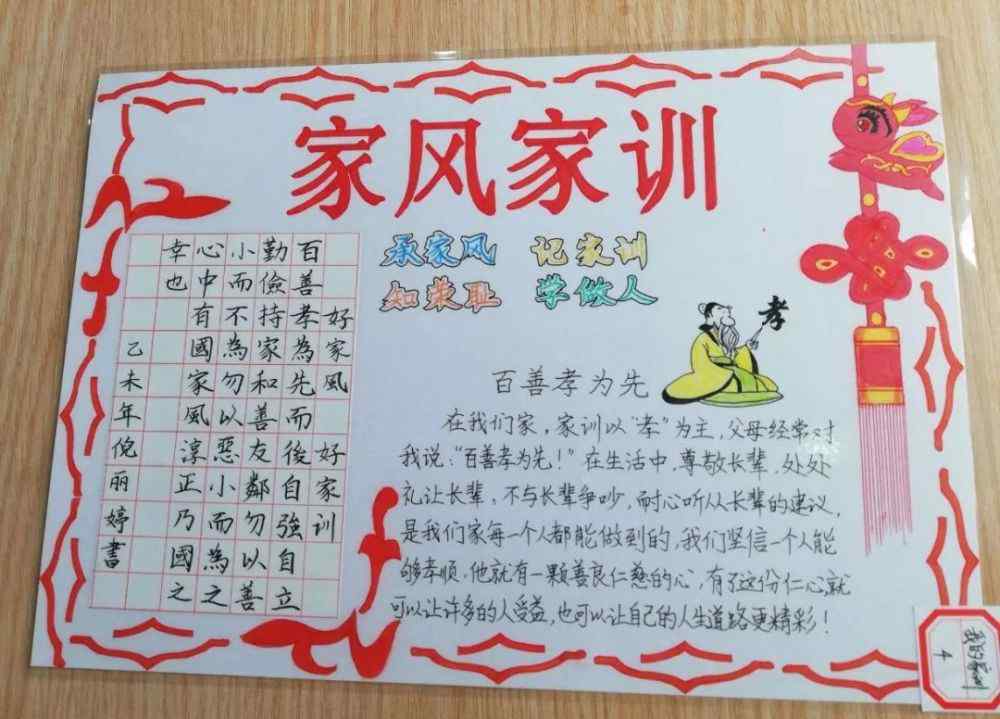 家风家训
好家風 好家訓
百善孝為先而後自強自立
勤儉持家和善友鄰勿以善
小而不為勿以惡小而為之
心中有國家風淳正乃國之
幸也
乙未年倪丽婷書
承家风 记家训
知荣耻 学做人
孝
百善孝为先
在我们家，家训以“孝”为主，父母经常对
我说：“百善孝为先！”在生活中，尊敬长辈，处处
礼让长辈，不与长辈争吵，耐心听从长辈的建议，
是我们家每一个人都能做到的，我们坚信一个人能
够孝顺，他就有一颗善良仁慈的心，有了这份仁心就
可以让许多的人受益，也可以让自己的人生道路更精彩！
我的家训
4